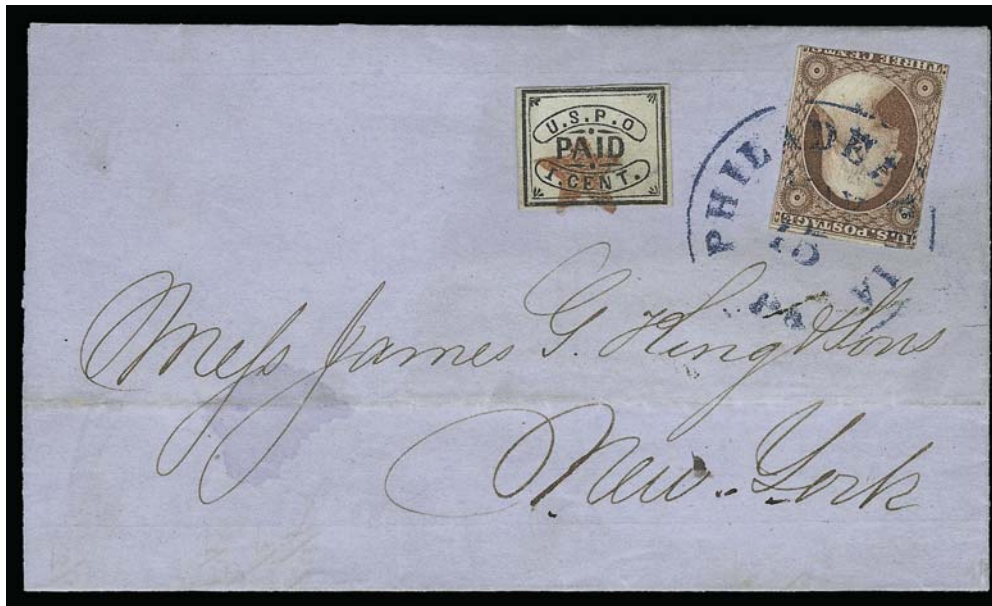 U.S.P.O
PAID
1. CENT.
THREE CENTS
U.S. POSTAGE
PHILADELPHIA Pa
15
Mess James G. King & Sons
New York